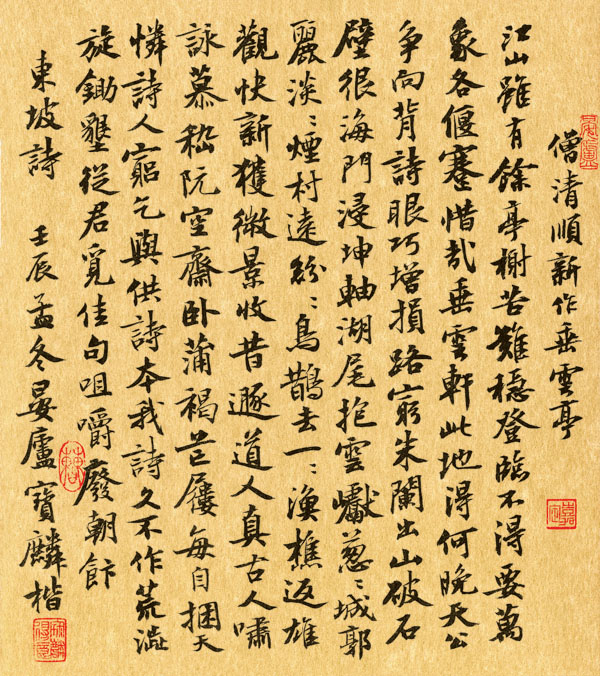 僧清順新作垂雲亭
江山雖有餘亭榭苦難穩登臨不得要萬
象各偃蹇惜哉垂雲軒此地得何晚天公
爭向背詩眼巧增損路窮朱闌出山破石
壁很海門浸坤軸湖尾抱雲巘蔥〻城郭
麗淡〻煙村遠紛〻鳥鵲去一〻漁樵返雄
觀快新獲微景收昔遯道人真古人嘯
詠慕嵇阮空齋卧蒲褐芒屨每自捆天
憐詩人窮乞與供詩本我詩久不作荒澁
旋鋤墾從君覓佳句咀嚼廢朝飰
東坡詩 壬辰孟冬晏廬寶麟楷